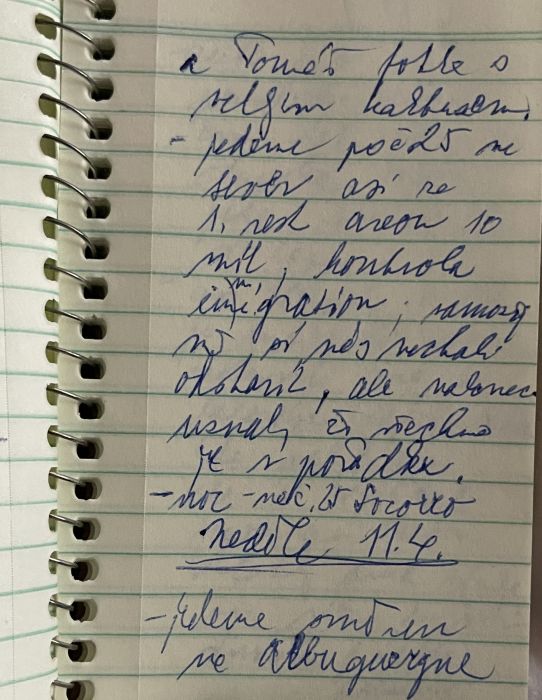 a Tomáš fotka s
velkým kaktusem.
- jedeme po č 25 na
sever asi za
1, rest areou 10
mil, kontrola
imigration, samozř
mě si nás nechali
, ale nakonec
uznali, že všechno
je v pořádku.
- noc - na č. 25 Socorro
neděle 11.4.
- jedeme směrem
na Albuquerque